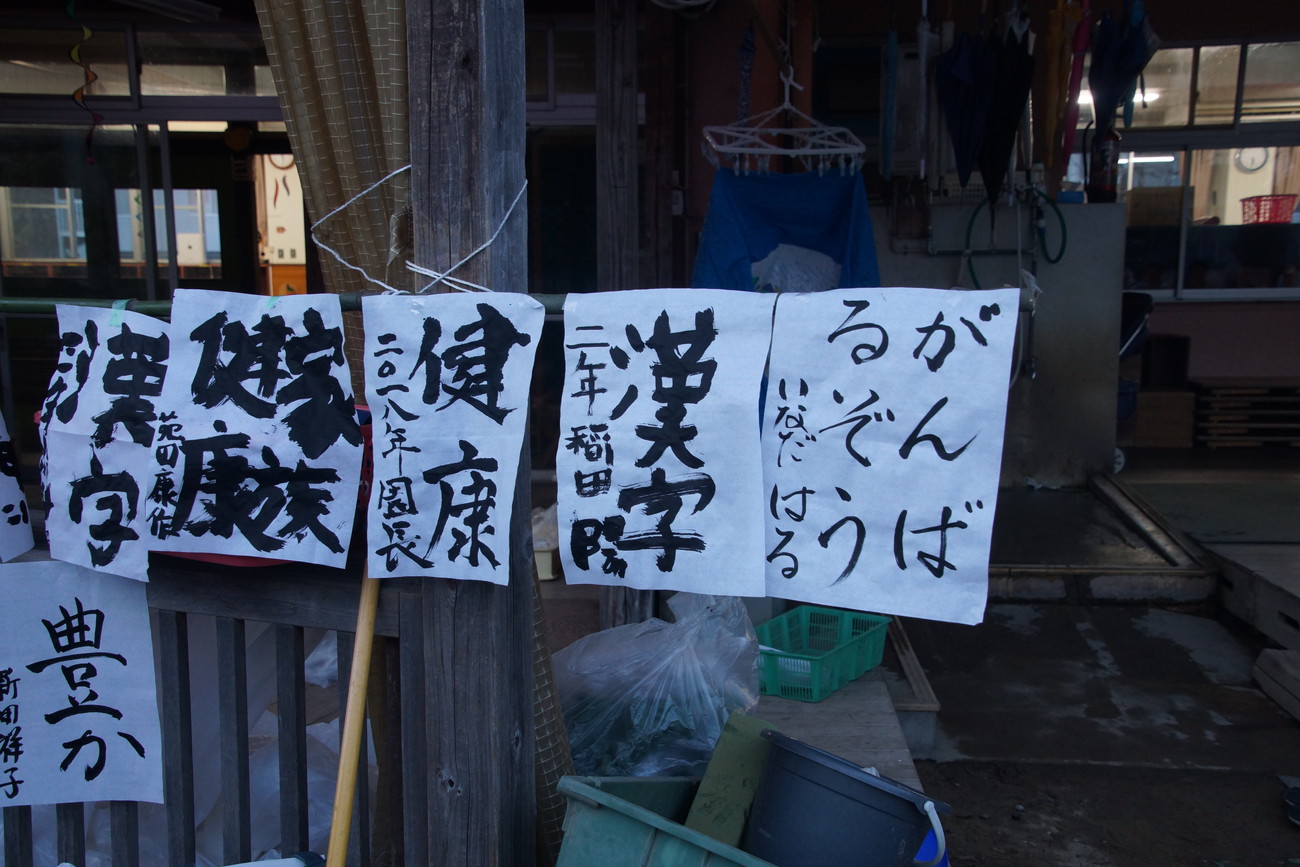 がんば
るぞう
いなだ はる
漢字
二年 稲田 陽
健康
二〇一八年 園長
家族
健康
漢字
豊か
新田祥子